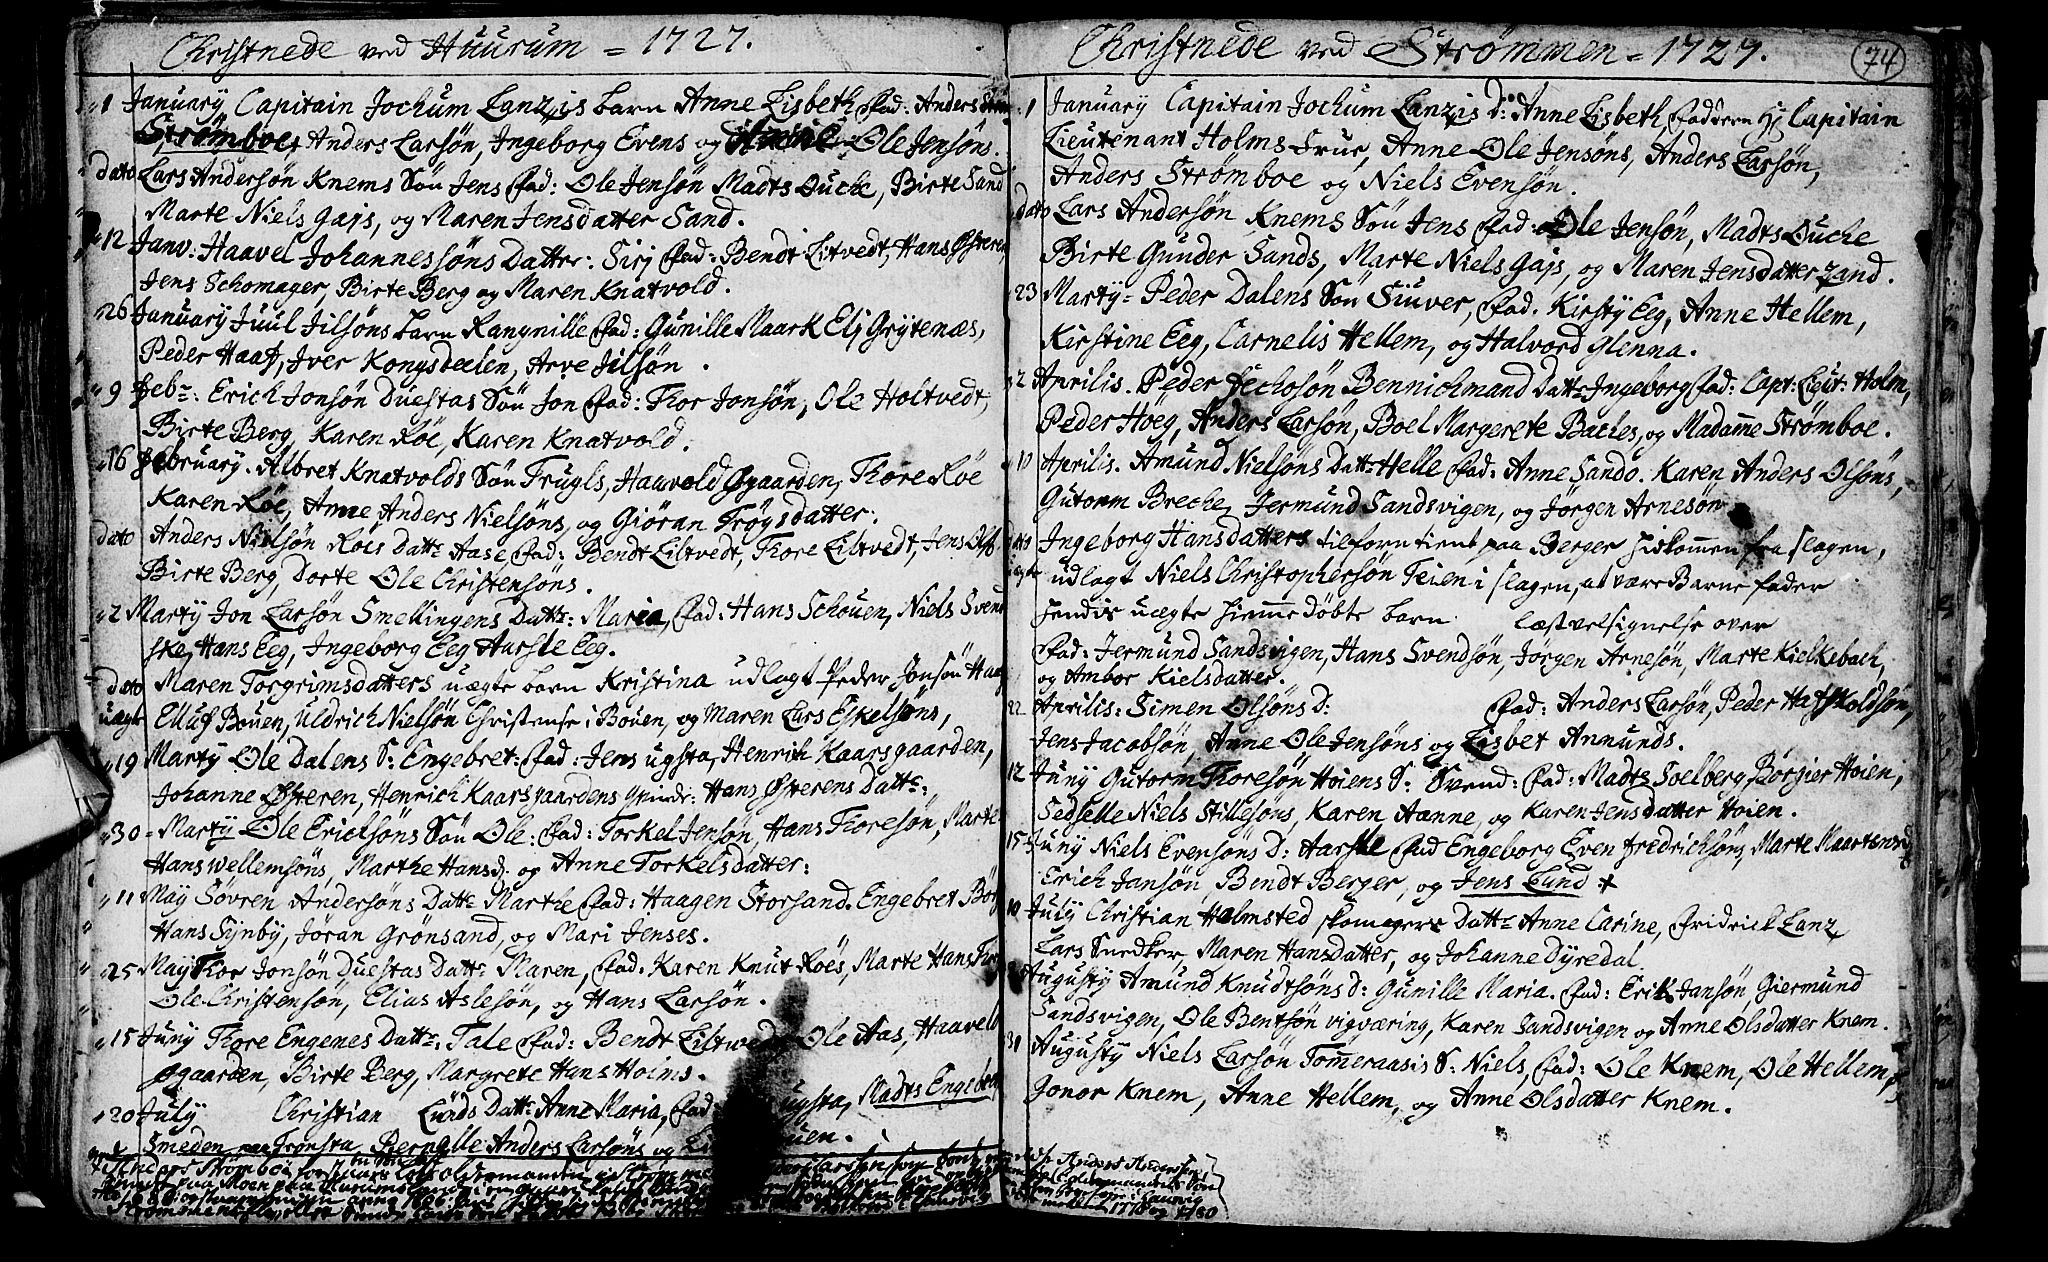 Christnede ved Huurum = 1727.
1 January Capitain Jochum Lanzis barn Anne Lisbeth Fad: Anders
Strømboe, Anders Larsøn, Ingeborg Evens og Ole Jensøns.
dato Lars Andersøn Knems Søn Jens Fad: Ole Jensøn Madts Ouche, Birte Sand
Marte Niels Gajs, og Maren Jensdatter Sand.
12 Janv: Haavel Johannessøns Datter: Sirj Fad: Bendt Litvedt, Hans Østeren,
Jens Schomager, Birte Berg og Maren Knatvold.
26 January Juul Jilsøns barn Rangnille Fad: Gunille Maark Elj Grytenæs,
Peder Haaf, Iver Kongsdeelen, Arve Jilsøn.
9 Feb: Erich Jonsøn Duestas Søn Jon Fad: Thor Jonsøn, Ole Holtvedt,
Birte Berg, Karen Röe, Karen Knatvold.
16 February. Albret Knatvolds Søn Trugls, Haavold Øgaarden, Thore Röe
Karen Röe, Anne Anders Nielsøns, og Giøran Trøysdatter.
dato Anders Nielsøn Röes Datt: Aase, Fad: Bendt Liltvedt, Thore Liltvedt, Jens
Birte Berg, Dorte Ole Christensøns.
2 Marty Jon Larsøn Smellingens Datt: Maria, Fad: Hans Schouen, Niels Svend
ske, Hans Eeg, Ingeborg Eeg Aarste Eeg.
dato Maren Torgrimsdatters uægte barn Kristina udlagt Peder Jonsøn
uægte Elluf Bouen, Uldrich Nielsøn Christense i Bouen, og Maren Lars Eskelsøns,
19 Marty Ole Dalens S: Engebret: Fad: Jens ugsta, Henrich Kaarsgaarden,
Johanne Østeren, Henrich Kaarsgaardens Qvinde: Hans Østerens Datt:
30 - Marty Ole Ericksøns Søn Ole: Fad: Torkel Jensøn, Hans Thoresøn, Marte
Hans Wellemsøns, Marthe Hansd: og Anne Torkelsdatter:
11 May Søvren Andersøns Datt: Marthe Fad: Haagen Storsand. Engebret
Hans Synby, Jøran Grønsand, og Mari Jenses.
25 May Thor Jonsøn Duestas Datt: Maren, Fad. Karen Knut Röes, Marte Hans
Ole Christensøn, Elias Aslesøn, og Hans Larsøn.
15 Juny Thore Engenes Datt: Tale Fad: Bendt Liltvedt Ole Aas, Haavel
Øgaarden, Birte Berg, Margrete Hans Holms.
20 July Christian Lunds Datt: Anne Maria, Fad: ugsta, Madts
Smeden paa Trønsta Bernille Anders Larsøns og
Christnede ved Strømmen = 1727.
74
1 January Capitain Jochum Lanzis D: Anne Lisbeth, Faddern Hr Capitain
Lieutenant Holms Frue, Anne Ole Jensøns, Anders Larsøn,
Anders Strømboe og Niels Evensøn.
dato Lars Andersøn Knems Søn Jens Fad: Ole Jensøn, Madts Ouche
Birte Gunder Sands, Marte Niels Gajs, og Maren Jensdatter Zand.
23 Marty = Peder Dalens Søn Siuver, Fad. Kirsty Eeg, Anne Hellem,
Kirstine Eeg, Carnelis Hellem, og Halvord Glenna.
2 Aprilis. Peder Bennichmand Datt: Ingeborg Fad: Capt: Lieut: Holm,
Peder Høeg, Anders Larsøn, Boel Margerete Baches, og Madame Strømboe.
10 Aprilis. Amund Nielsøns Datt: Helle Fad: Anne Sando. Karen Anders Olsøns,
Gutorm Breche, Jermund Sandsvigen, og Jørgen Arnesøn
dato Ingeborg Hansdatters tilforn tient paa Berger hidkommen fra Slagen,
uægte udlagt Niels Christophersøn Feien i Slagen, at være Barne fader
hendis uægte hiemme døbte barn. læst velsignelse over
Fad: Jermund Sandsvigen, Hans Svendsøn, Jørgen Arnesøn, Marte Kielkebach,
og Ambor Kielsdatter.
22 Aprilis: Simen Olsøns D: Fad: Anders Larsøn, Peder Hafskoldsøn,
Jens Jacobsøn, Anne Ole Jensøns og Lisbet Anmunds.
12 Juny Gutorm Thoresøn Hoiens S: Svend: Fad: Madts Soelberg, Børgier Hoien,
Sedselle Niels Stillesøns, Karen Hanne, og Karen Jensdatter Hoien.
15 Juny Niels Evensøns D: Aarste Fad Engeborg Even Fredrichsøns, Marte
Erich Jansøn, Bendt Berger, og Jens Lund +
10 July Christian Holmsted skomagers Datt: Anne Carine, Fridrich Lanz
Lars Snedker, Maren Hansdatter, og Johanne Dyredal
Augusty Amund Knudtsøns d: Gunille Maria. Fad: Erik Jansøn Giermund
Sandsvigen, Ole Bentsøn vigværing, Karen Sandsvigen og Anne Olsdatter Knem.
31 Augusty Niels Larsøn Tomeraasis S: Niels, Fad: Ole Knem, Ole Hellem,
Gonor Knem, Anne Hellem, og Anne Olsdatter Knem.